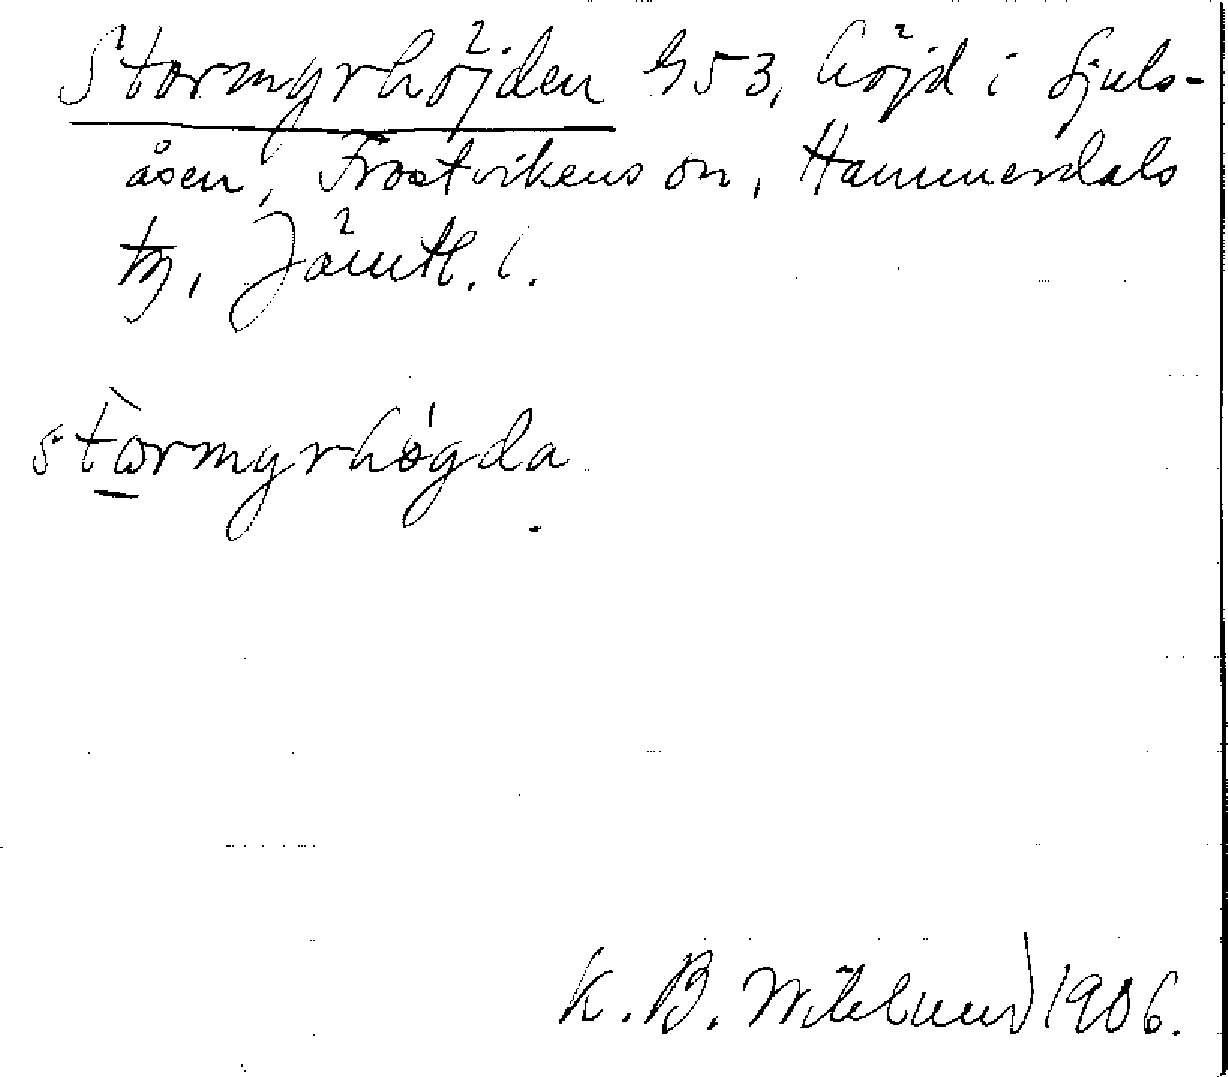 Stormyrhöjden 953, höjd i Sjuls-
åsen, Frostvikens sn, Hammerdals
tg, Jämtl. l.
stormyrhøgda
K. B. Wiklund 1906.